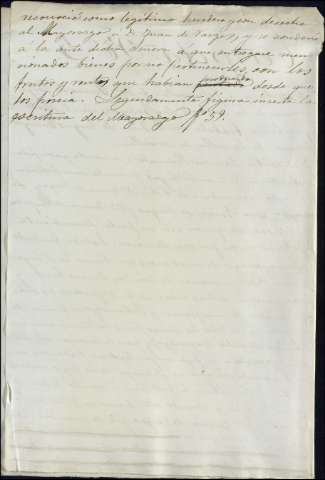 reconoció como legítimo heredero y con derecho
al Mayorazgo a D. Juan de Vargas, y se condenó
a la ante dicha señora a que entregase men
cionados bienes por no pertenecerle, con los
frutos y rentas que habían producido desde que
los poseía. Seguidamente figura inserta la
escritura del Mayorazgo fº 59.